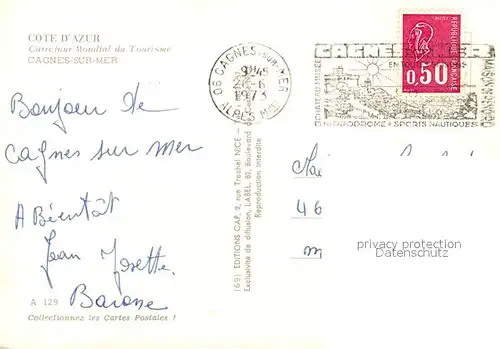 COTE D'AZUR
Carrefour Mondial du Tourisme
CAGNES-SUR-MER
Bonjour de
Cagnes sur mer
A Bientôt
Jean Josette
Barone
A 129
Collectionnez les Cartes Postales !
(69) EDITIONS CAP, 2, rue Trachel NICE -
Exclusivité de diffusion, LABEL, 82, Boulevard
Reproduction Interdite
06 CAGNES-SUR-MER
9H45
26-6
1973
ALPES MMES
CAGNES-SUR-MER
EN TOUTE
CHATEAU MUSEE
MAISON DE RENOIR
HIPPODROME * SPORTS NAUTIQUES
0,50
REPUBLIQUE FRANCAISE
46
m
privacy protection
Datenschutz